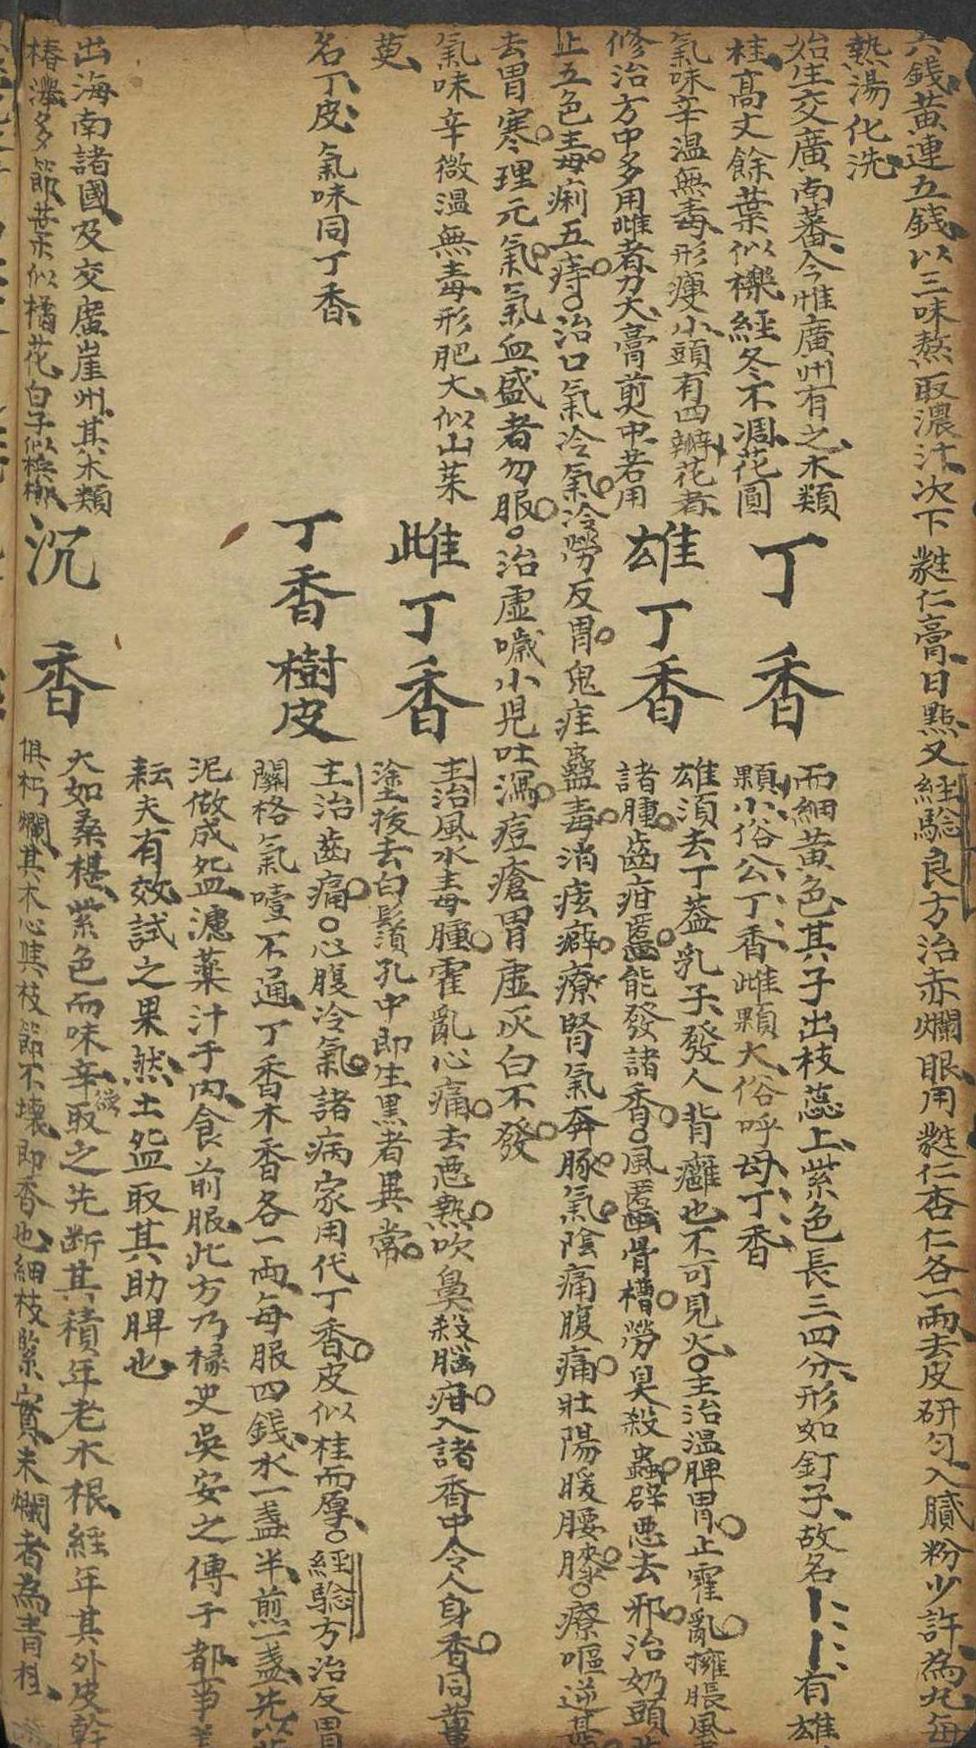 錢黃連五錢以三味熬取濃汁次下蕤仁膏日點又經驗良方治赤爛眼用蕤仁杏仁各一兩去皮研勻入膩粉少許為丸每
熱湯化洗
丁香
始生交廣南蕃今惟廣州有之木類
桂高丈餘葉似櫟經冬不凋花圓
而細黃色其子出枝蕊上紫色長三四分形如釘子故名丁丁有雄
顆小俗公丁香雌顆大俗呼母丁香
雄丁香
氣味辛溫無毒形瘦小頭有四瓣花者
修治方中多用雌者力大膏煎中若用
雄須去丁蓋乳子發人背癰也不可見火主治溫脾胃止霍亂擁脹風
諸腫齒疳䘌能發諸香風䘌骨槽勞臭殺蟲辟惡去邪治奶頭
止五色毒痢五痔治口氣冷氣冷勞反胃鬼疰蠱毒消痃癖療腎氣奔豚氣陰痛腹痛壯陽暖腰膝療嘔逆甚
去胃寒理元氣氣血盛者勿服治虛噦小兒吐瀉痘瘡胃虛灰白不發
雌丁香
氣味辛微溫無毒形肥大似山茱
萸
主治風水毒腫霍亂心痛去惡熱吹鼻殺腦疳入諸香中令人身香同薑
塗拔去白鬚孔中即生黑者異常
丁香樹皮
名丁皮氣味同丁香
主治齒痛心腹冷氣諸病家用代丁香皮似桂而厚經驗方治反胃
關格氣噎不通丁香木香各一兩每服四錢水一盞半煎一盞先以
泥做成盌濾藥汁于內食前服此方乃椽史吳安之傳于都事
耘夫有效試之果然土盌取其助脾也
沉香
出海南諸國及交廣崖州其木類
椿櫸多節葉似橘花白子似檳榔
大如桑椹紫色而味辛欲取之先斷其積年老木根經年其外皮幹
俱朽爛其木心與枝節不壞即香也細枝緊實未爛者為青桂